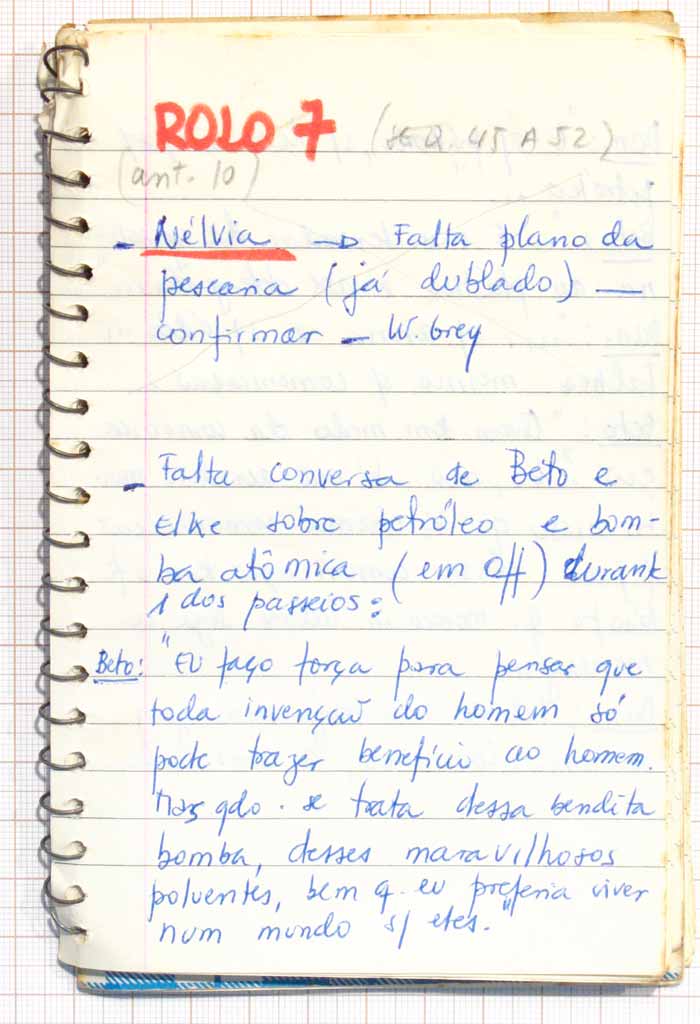 ROLO 7 (SEQ. 45 A 52)
(ant. 10)
- Nélvia → Falta plano da
pescaria (já dublado) —
confirmar - W. Grey
- Falta conversa de Beto e
Elke sobre petróleo e bom-
ba atômica (em off) durante
1 dos passeios:
Beto: "Eu faço força para pensar que
toda invenção do homem só
pode trazer benefício ao homem.
Mas qdo. se trata dessa bendita
bomba, desses maravilhosos
poluentes, bem q. eu preferia viver
num mundo s/ eles."